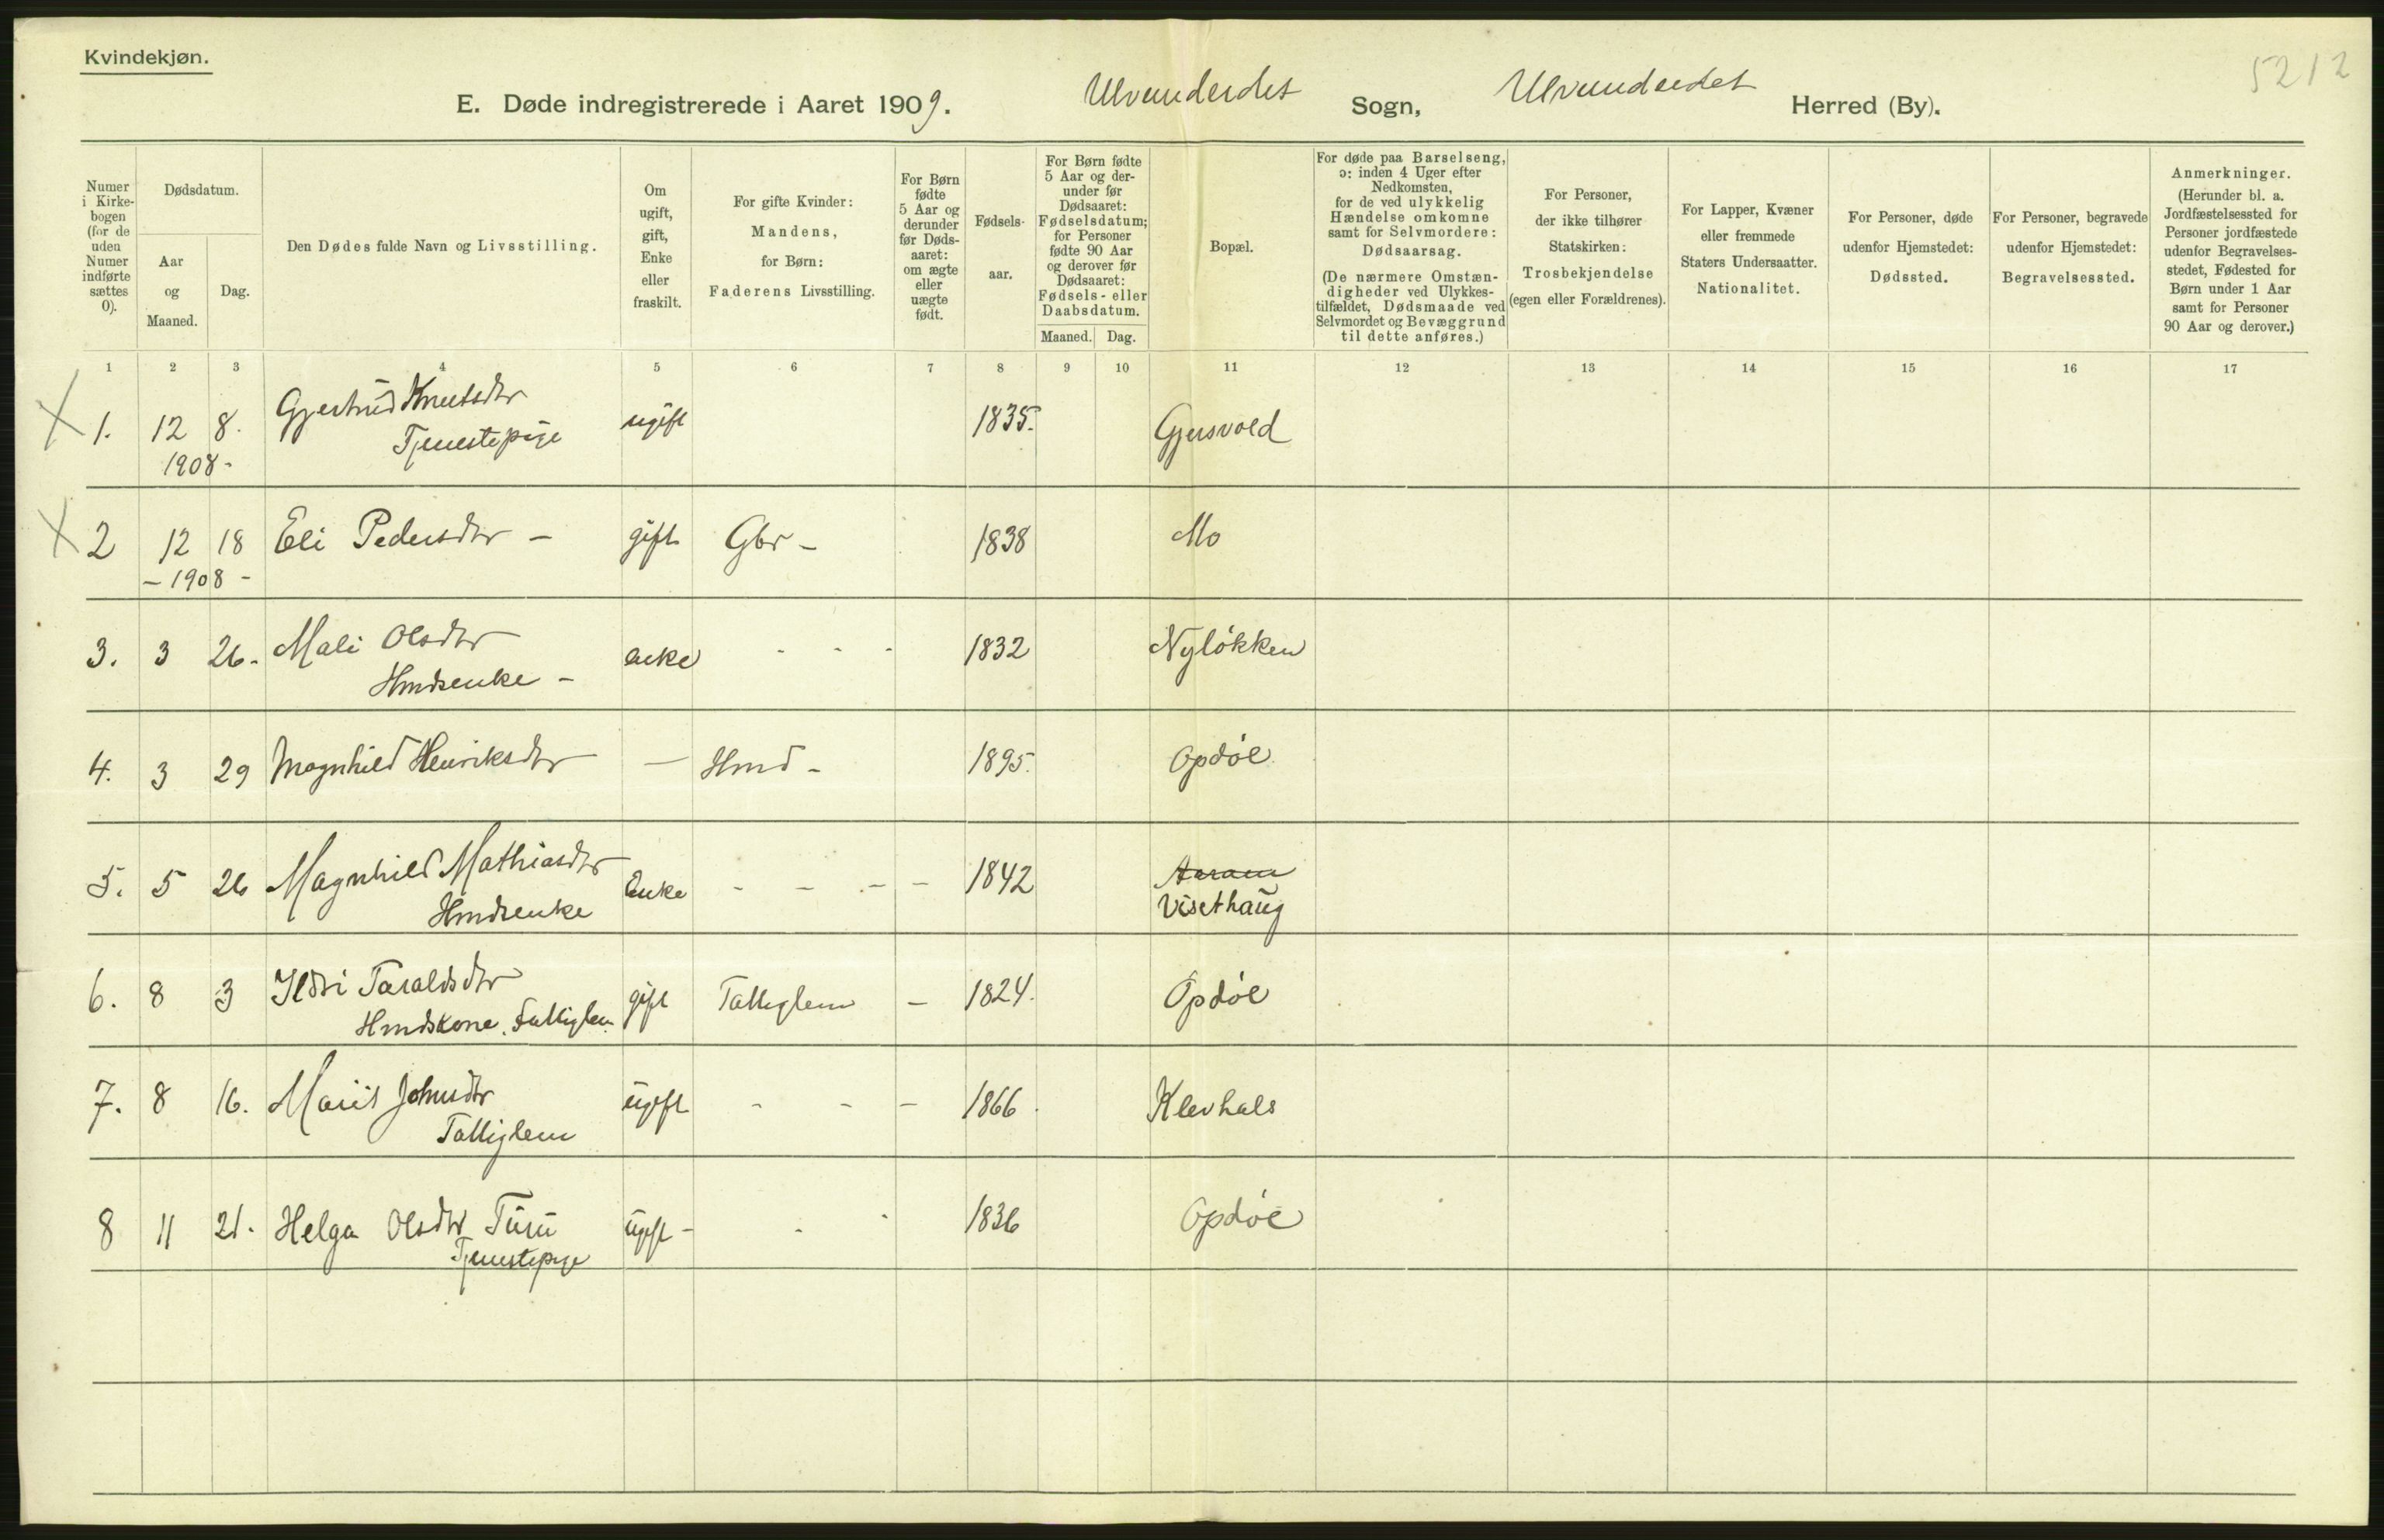 Kvindekjøn.
5212
E. Døde indregistrerede i Aaret 1909. Ulvundeidet Sogn, Ulvundeidet Herred (By).
Numer i Kirkebogen (for de uden Numer indførte sættes 0).
Dødsdatum.
Aar og Maaned.
Dag.
Den Dødes fulde Navn og Livsstilling.
Om ugift, gift, Enke eller fraskilt.
For gifte Kvinder: Mandens, for Børn: Faderens Livsstilling.
For Børn fødte 5 Aar og derunder før Dødsaaret: om ægte eller uægte født.
Fødselsaar.
For Børn fødte 5 Aar og derunder før Dødsaaret: Fødselsdatum; for Personer fødte 90 Aar og derover før Dødsaaret: Fødsels- eller Daabsdatum.
Maaned. Dag.
Bopæl.
For døde paa Barselseng, ɔ: inden 4 Uger efter Nedkomsten, for de ved ulykkelig Hændelse omkomne samt for Selvmordere: Dødsaarsag.
(De nærmere Omstændigheder ved Ulykkestilfældet, Dødsmaade ved Selvmordet og Bevæggrund til dette anføres.)
For Personer, der ikke tilhører Statskirken: Trosbekjendelse (egen eller Forældrenes).
For Lapper, Kvæner eller fremmede Staters Undersaatter. Nationalitet.
For Personer, døde udenfor Hjemstedet: Dødssted.
For Personer, begravede udenfor Hjemstedet: Begravelsessted.
Anmerkninger.
(Herunder bl. a. Jordfæstelsessted for Personer jordfæstede udenfor Begravelsesstedet, Fødested for Børn under 1 Aar samt for Personer 90 Aar og derover.)
1 2 3 4 5 6 7 8 9 10 11 12 13 14 15 16 17
1. 12 8. Gjertrud Knutsdtr ugift 1835. Gjersvold
1908- Tjenestepige
2 12 18 Eli Pedersdtr - gift Gbr - 1838 Mo
- 1908 -
3. 3 26. Mali Olsdtr enke - - - 1832 Nyløkken
Hmdsenke -
4. 3 29 Magnhild Henriksdtr — Hmd - 1895. Opdøl
5. 5 26 Magnhild Mathiasdtr Enke - - - - 1842 Aaram
Hmdsenke Visethaug
6. 8 3 Ildri Taraldsdtr gift Fattiglem - 1824. Opdøl
Hmdskone. Fattiglem
7. 8 16. Marit Johnsdtr ugift - - - 1866. Klevhals
Fattiglem
8 11 21. Helga Olsdtr Turu ugift - - - 1836 Opdøl
Tjenestepige